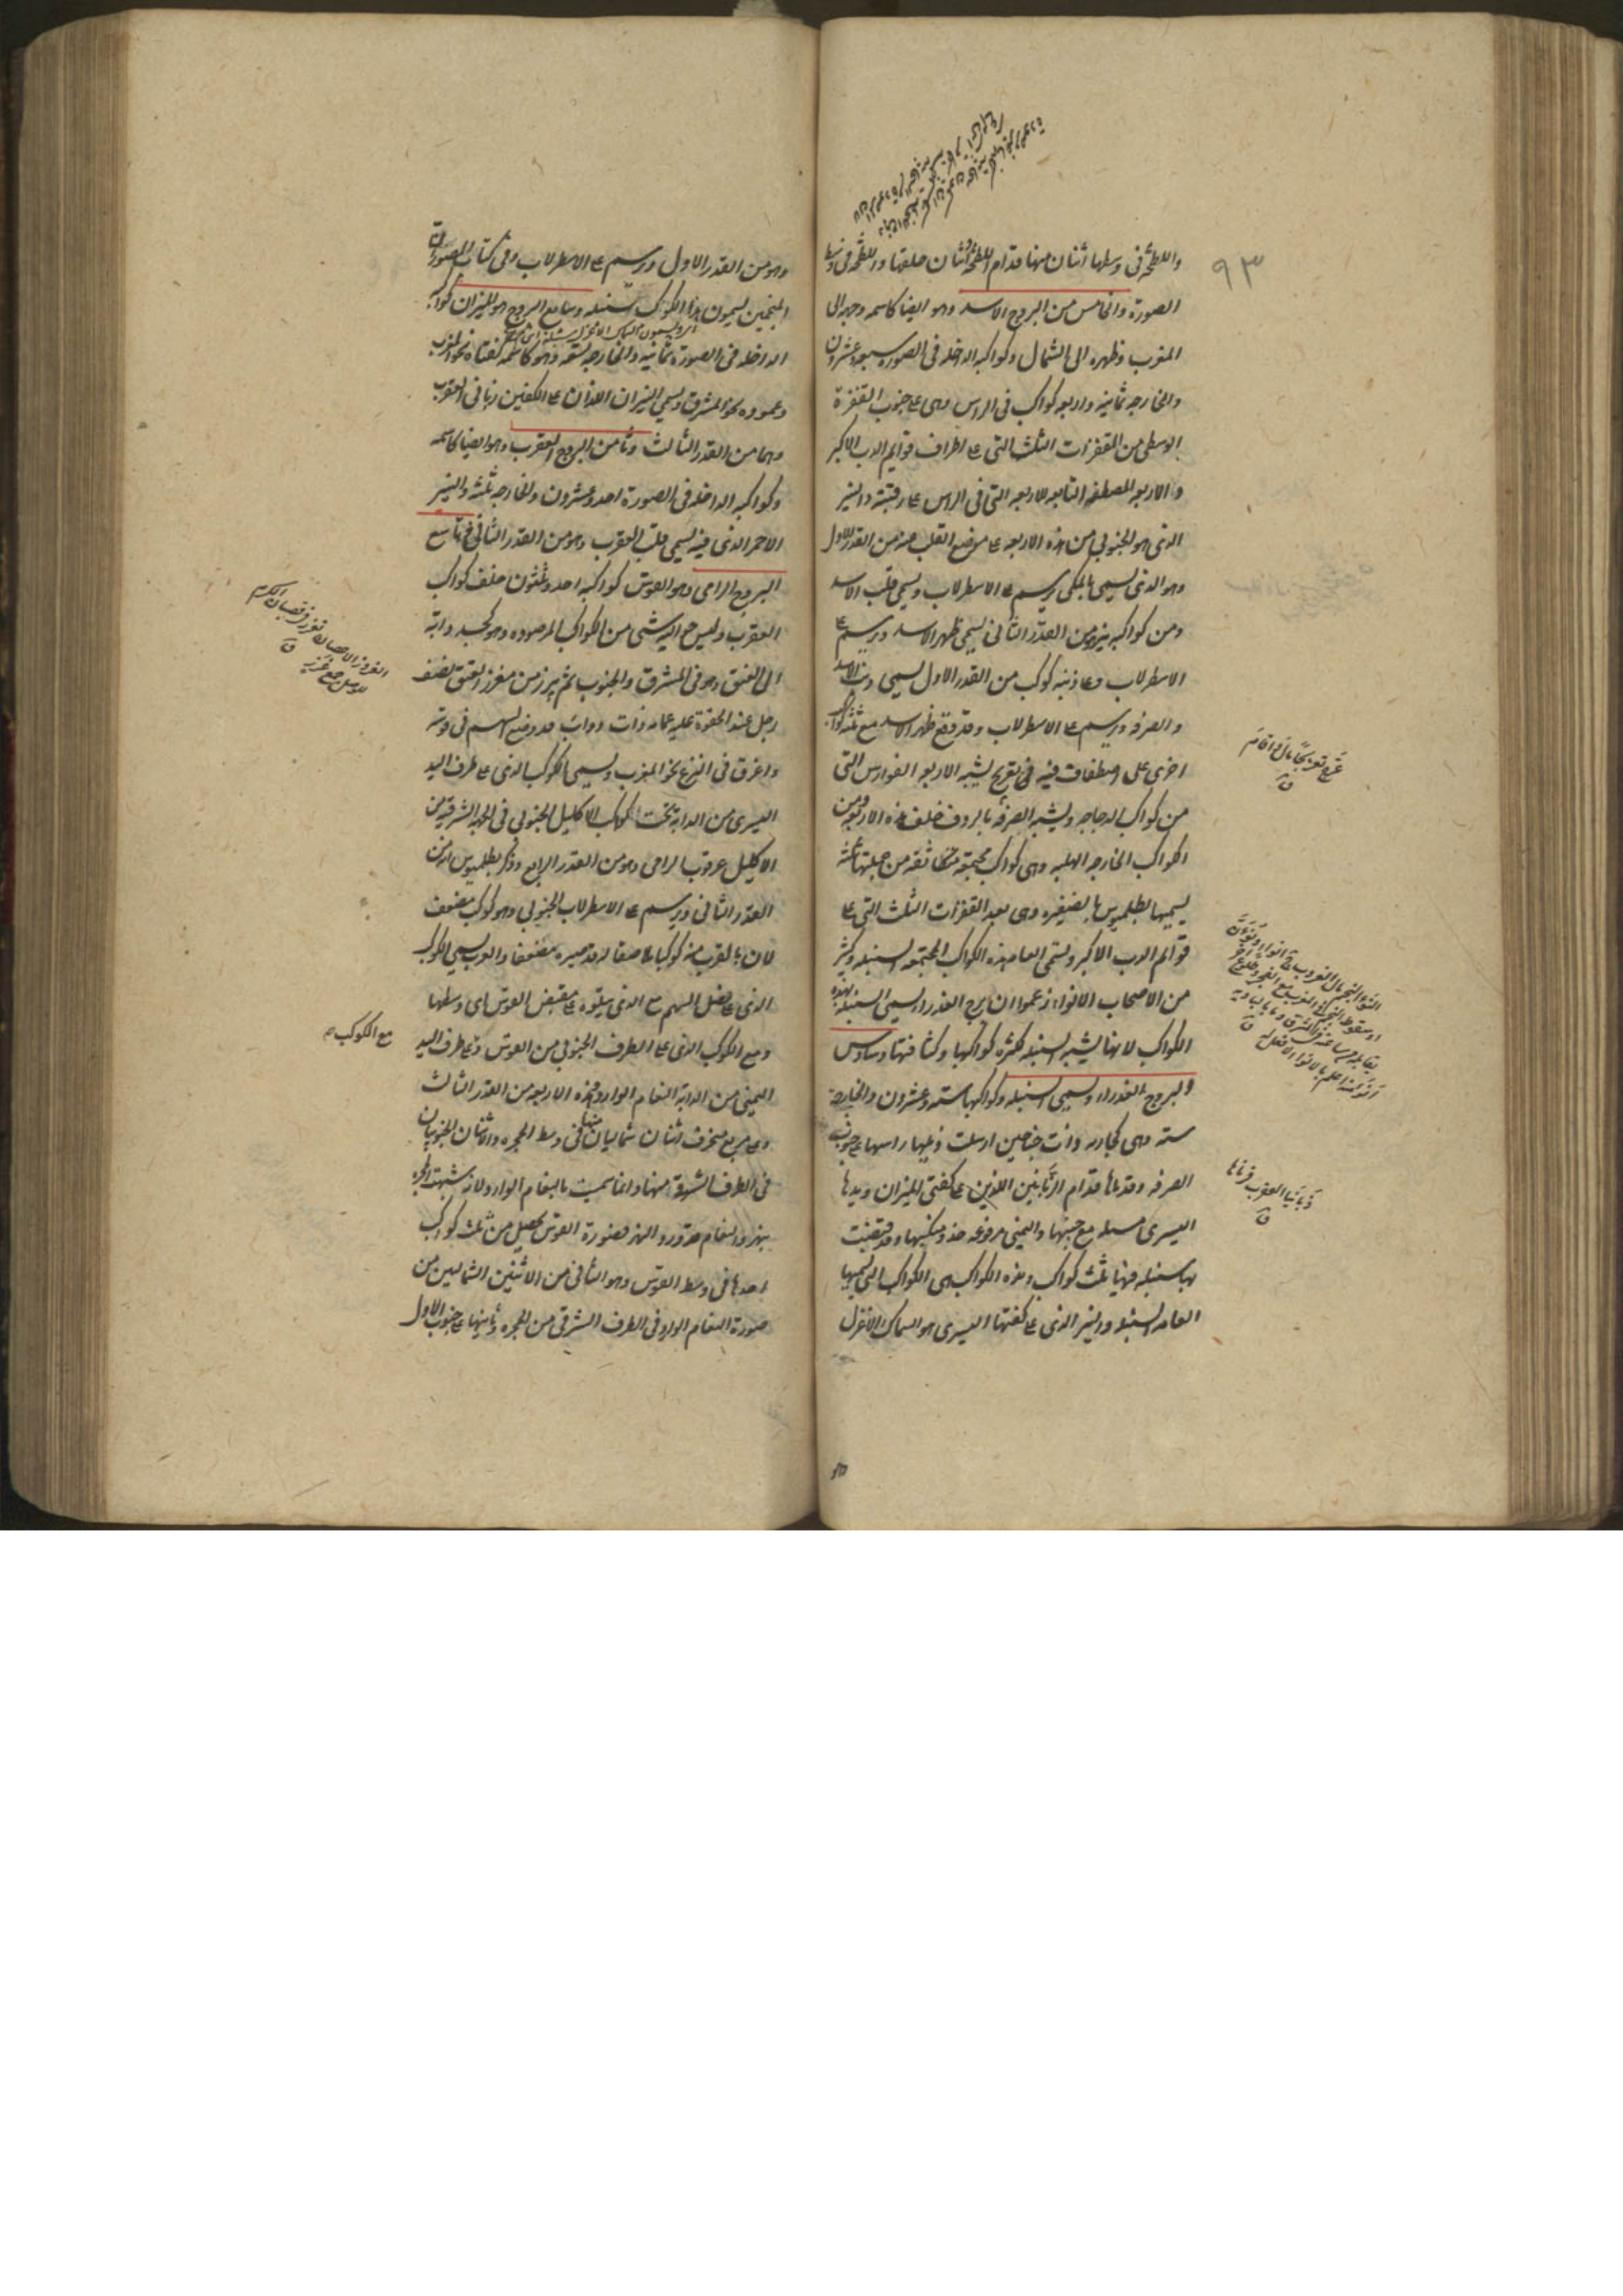 ٩٣
واللطخة فى وسطها اثنان منها قدام اللطخة واثنان خلفها واللطخة فى وسط
الصورة والخامس من البروج الاسد وهو ايضا كاسمه وجهه الى
المغرب وظهره الى الشمال وكواكبه الداخله فى الصوره سبعه وعشرون
والخارجه ثمانيه واربعه كواكب فى الراس وهى ع جنوب القفزة
الوسطى من القفزات الثلث التى ع اطراف قوايم الدب الاكبر
والاربعه المصطفه التابعه للاربعه التى فى الراس ع رقبته والنير
الذى هو الجنوبى من هذه الاربعه ع موضع القلب منه من القدر الاول
وهو الذى يسمى بالملكى ويرسم ع الاسطرلاب ويسمى قلب الاسد
ومن كواكبه نير من القدر الثانى يسمى ظهر الاسد ويرسم ع
الاسطرلاب وع ذنبه كوكب من القدر الاول يسمى ذنب الاسد
والصرفه ويرسم ع الاسطرلاب وقد وقع ظهر الاسد مع ثلثة كواكب
اخرى على اصطفاف فيه تعويج يشبه الاربعه الفوارس التى
من كواكب الدجاجه ويشبه الصرفه بالردف خلف هذه الاربعه ومن
الكواكب الخارجه الهلبه وهى كواكب مجتمعه متكاثفه من جملتها ثلثه
يسميها بطلميوس بالضفيره وهى بعد القفزات الثلث التى ع
قوائم الدب الاكبر وتسمى العامه هذه الكواكب المجتمعه السنبله وكثير
من الاصحاب الانواء زعموا ان برج العذراء يسمى السنبله بهذه
الكواكب لانها يشبه السنبله لكثرة كواكبها وكثافتها وسادس
البروج العذراء ويسمى السنبله وكواكبها سته وعشرون والخارجة
سته وهى كجاريه ذات جناحين ارسلت ذيلها راسها ع جنوب
الصرفه وقدماها قدام الزبانيين اللذين ع كفتى الميزان ويدها
اليسرى مسبله مع جنبها واليمنى مرفوعه حذو منكبها وقد قبضت
بها سنبله فيها ثلث كواكب وهذه الكواكب هى الكواكب التى تسميها
العامه السنبله والنير الذى ع كفها اليسرى هو السماك الاعزل
عرج تعريجا مال واقام
زبانيا العقرب قرناها
وهو من القدر الاول ويرسم ع الاسطرلاب وفى كتاب الصور ان
المنجمين يسمون هذا الكوكب سنبله وسابع البروج هو الميزان كواكبه
الداخله فى الصورة ثمانيه والخارجه تسعه وهو كاسمه كفتاه نحو المغرب
وعموده نحو المشرق ويسمى النيران اللذان ع الكفتين زبانى العقرب
وهما من القدر الثالث وثامن البروج العقرب وهو ايضا كاسمه
وكواكبه الداخله فى الصورة احد وعشرون والخارجه ثلثه والنير
الاحمر الذى فيه يسمى قلب العقرب وهو من القدر الثانى وتاسع
البروج الرامى وهو القوس كواكبه احد وثلثون خلف كواكب
العقرب وليس حواليه شئ من الكواكب المرصوده وهو كجسد دابة
الى العنق وهو فى المشرق والجنوب ثم يبرز من مغرز العنق نصف
رجل عند الحقوة عليه عمامه ذات ذوائب قد وضع السهم فى قوسه
واغرق فى النزع نحو المغرب ويسمى الكوكب الذى ع طرف اليد
اليسرى من الدابة تحت كوكب الاكليل الجنوبى فى الجهة الشرقية من
الاكليل عرقوب الرامى وهو من القدر الرابع وذكر بطلميوس انه من
القدر الثانى ويرسم ع الاسطرلاب الجنوبى وهو كوكب مضعف
لان بالقرب منه كوكبا ملاصقا له قد صيره مضعفا والعرب يسمى الكوكب
الذى ع نصل السهم مع الذى يتلوه ع مقبض القوس اى وسطها
ومع الكوكب الذى ع الطرف الجنوبى من القوس وع طرف اليد
اليمنى من الدابة النعام الوارد وهذه الاربعه من القدر الثالث
وع مربع منحرف اثنان شماليان منها فى وسط المجره والاثنان الجنوبيان
فى الطرف الشرقى منها وانما سميت بالنعام الوارد لانه شبهت المجره
بنهر والنعام قد ورد النهر فصورة القوس تحصل من ثلث كواكب
احدها فى وسط القوس وهو الثانى من الاثنين الشماليين من
صورة النعام الوارد فى الطرف الشرقى من المجره وثانيها ع جنوب الاول
مع الكوكب